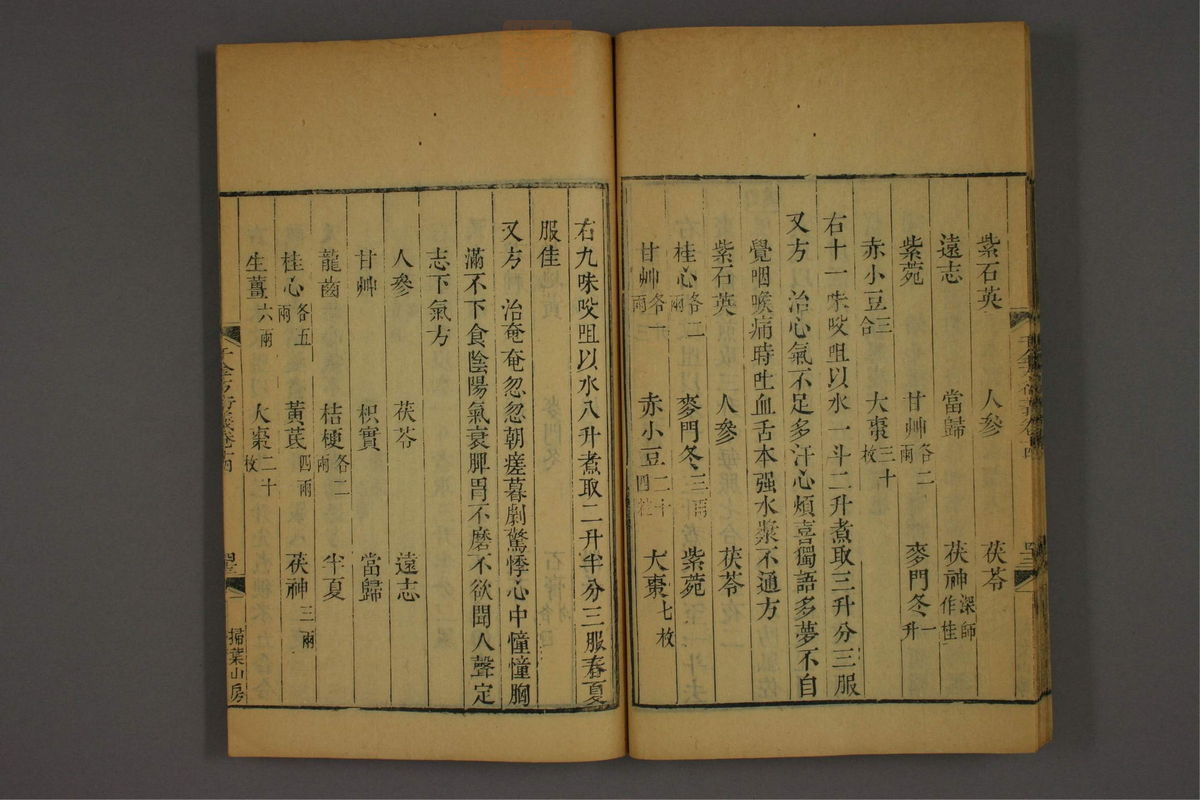 紫石英　人參　茯苓
遠志　當歸　茯神深師作桂
紫菀　甘艸各二兩　麥門冬一升
赤小豆三合　大棗三十枚
右十一味㕮咀以水一斗二升煮取三升分三服
又方　治心氣不足多汗心煩喜獨語多夢不自
覺咽喉痛時吐血舌本强水漿不通方
紫石英　人參　茯苓
桂心各二兩　麥門冬三兩　紫菀
甘艸各一兩　赤小豆二十四粒　大棗七枚
右九味㕮咀以水八升煮取二升半分三服春夏
服佳
又方　治奄奄忽忽朝瘥暮劇驚悸心中憧憧胸
滿不下食陰陽氣衰脾胃不磨不欲聞人聲定
志下氣方
人參　茯苓　遠志
甘艸　枳實　當歸
龍齒　桔梗各二兩　半夏
桂心各五兩　黃芪四兩　茯神三兩
生薑六兩　大棗二十枚
千金方衍義卷十四
掃葉山房